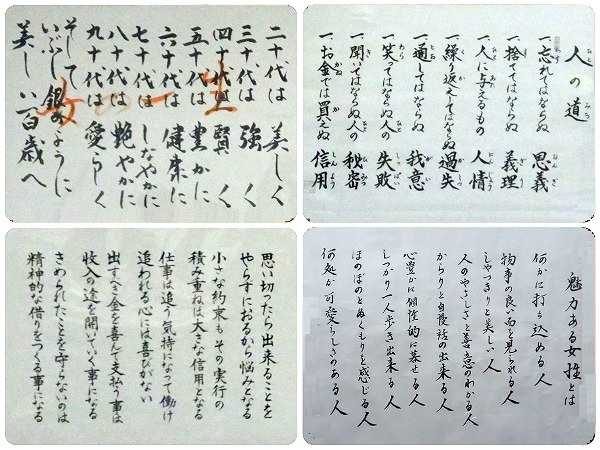 女の一生
二十代は 美しく
三十代は 強く
四十代は 賢く
五十代は 豊かに
六十代は 健康に
七十代は しなやかに
八十代は 艶やかに
九十代は 愛らしく
そして
いぶし銀のように
美しい百歳へ
人の道
一、忘れてはならぬ 恩義
一、捨ててはならぬ 義理
一、人に与えるもの 人情
一、繰り返えしてはならぬ 過失
一、通してはならぬ 我意
一、笑ってはならぬ人の 失敗
一、聞いてはならぬ人の 秘密
一、お金では買えぬ 信用
思い切ったら出来ることを
やらずにおるから悩みとなる
小さな約束もその実行の
積み重ねは大きな信用となる
仕事は追う気持になって働け
追われる心には喜びがない
出すべき金を喜んで支払う事は
収入の途を開いていく事になる
きめられたことを守らないのは
精神的な借りをつくる事になる
魅力ある女性とは
何かに打ち込める人
物事の良い面を見られる人
しゃっきりと美しい人
人のやさしさと善意のわかる人
からりと自慢話の出来る人
心豊かに個性的に装せる人
しっかり一人歩き出来る人
ほのぼのとぬくもりを感じる人
何処か可愛らしさのある人